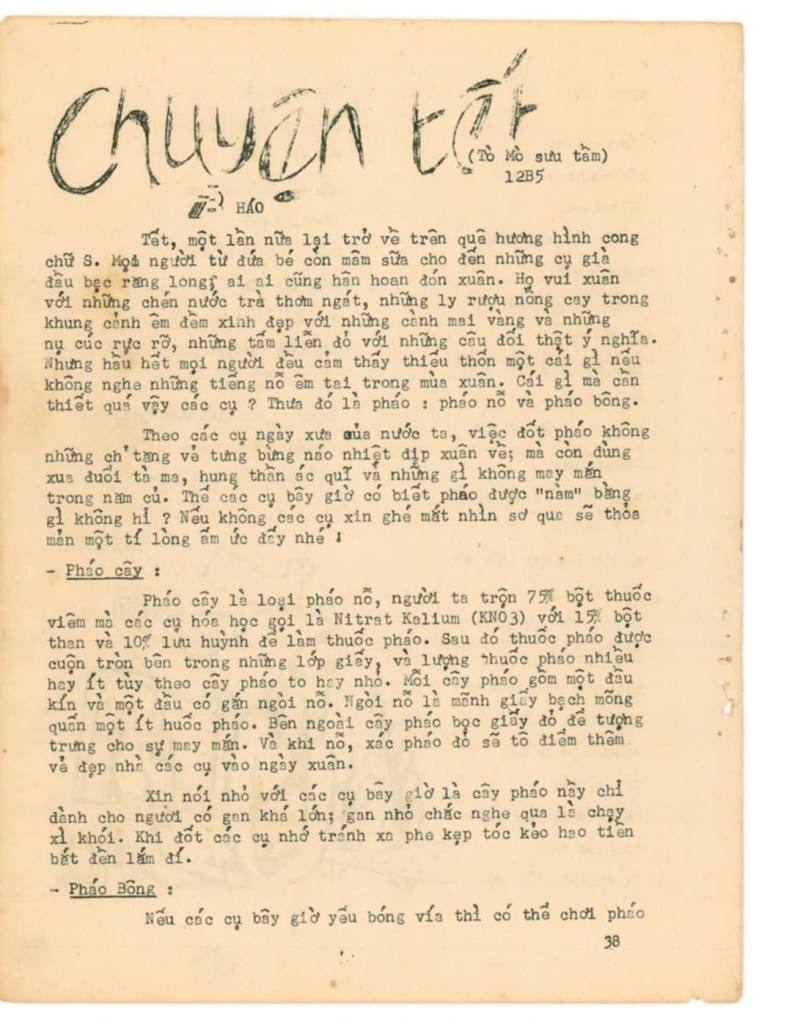 Chuyện tết
(Tò Mò sưu tầm)
12B5
HÁO
Tết, một lần nữa lại trở về trên quê hương hình cong
chữ S. Mọi người từ đứa bé còn mâm sữa cho đến những cụ già
đầu bạc răng long, ai ai cũng hân hoan đón xuân. Họ vui xuân
với những chén nước trà thơm ngát, những ly rượu nồng cay trong
khung cảnh êm đềm xinh đẹp với những cành mai vàng và những
nụ cúc rực rỡ, những tấm liễn đỏ với những câu đối thật ý nghĩa.
Nhưng hầu hết mọi người đều cảm thấy thiếu thốn một cái gì nếu
không nghe những tiếng nổ êm tai trong mùa xuân. Cái gì mà cần
thiết quá vậy các cụ ? Thưa đó là pháo : pháo nổ và pháo bông.
Theo các cụ ngày xưa của nước ta, việc đốt pháo không
những ch' tăng vẻ tưng bừng náo nhiệt dịp xuân về; mà còn dùng
xua đuổi tà ma, hung thần ác quỉ và những gì không may mắn
trong năm củ. Thế các cụ bây giờ có biết pháo được "nàm" bằng
gì không hỉ ? Nếu không các cụ xin ghé mắt nhìn sơ qua sẽ thỏa
mản một tí lòng ấm ức đấy nhé !
- Pháo cây :
Pháo cây là loại pháo nổ, người ta trộn 75% bột thuốc
viêm mà các cụ hóa học gọi là Nitrat Kalium (KNO3) với 15% bột
than và 10% lưu huỳnh để làm thuốc pháo. Sau đó thuốc pháo được
cuộn tròn bên trong những lớp giấy, và lượng thuốc pháo nhiều
hay ít tùy theo cây pháo to hay nhỏ. Mỗi cây pháo gồm một đầu
kín và một đầu có gắn ngòi nổ. Ngòi nổ là mãnh giấy bạch mỏng
quấn một ít huốc pháo. Bên ngoài cây pháo bọc giấy đỏ để tượng
trưng cho sự may mắn. Và khi nổ, xác pháo đỏ sẽ tô điểm thêm
vẻ đẹp nhà các cụ vào ngày xuân.
Xin nói nhỏ với các cụ bây giờ là cây pháo nầy chỉ
dành cho người có gan khá lớn; gan nhỏ chắc nghe qua là chạy
xì khói. Khi đốt các cụ nhớ tránh xa phe kẹp tóc kẻo hao tiền
bắt đền lắm đí.
- Pháo Bông :
Nếu các cụ bây giờ yếu bóng vía thì có thể chơi pháo
38